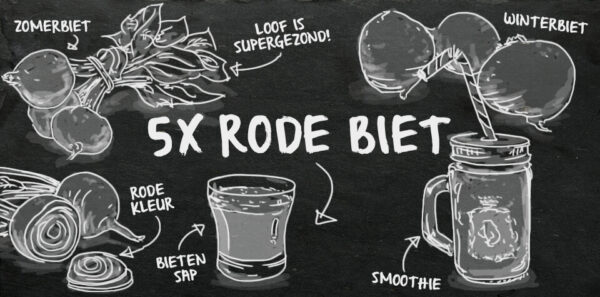 ZOMERBIET
LOOF IS
SUPERGEZOND!
WINTERBIET
5X RODE BIET
RODE
KLEUR
BIETEN
SAP
SMOOTHIE